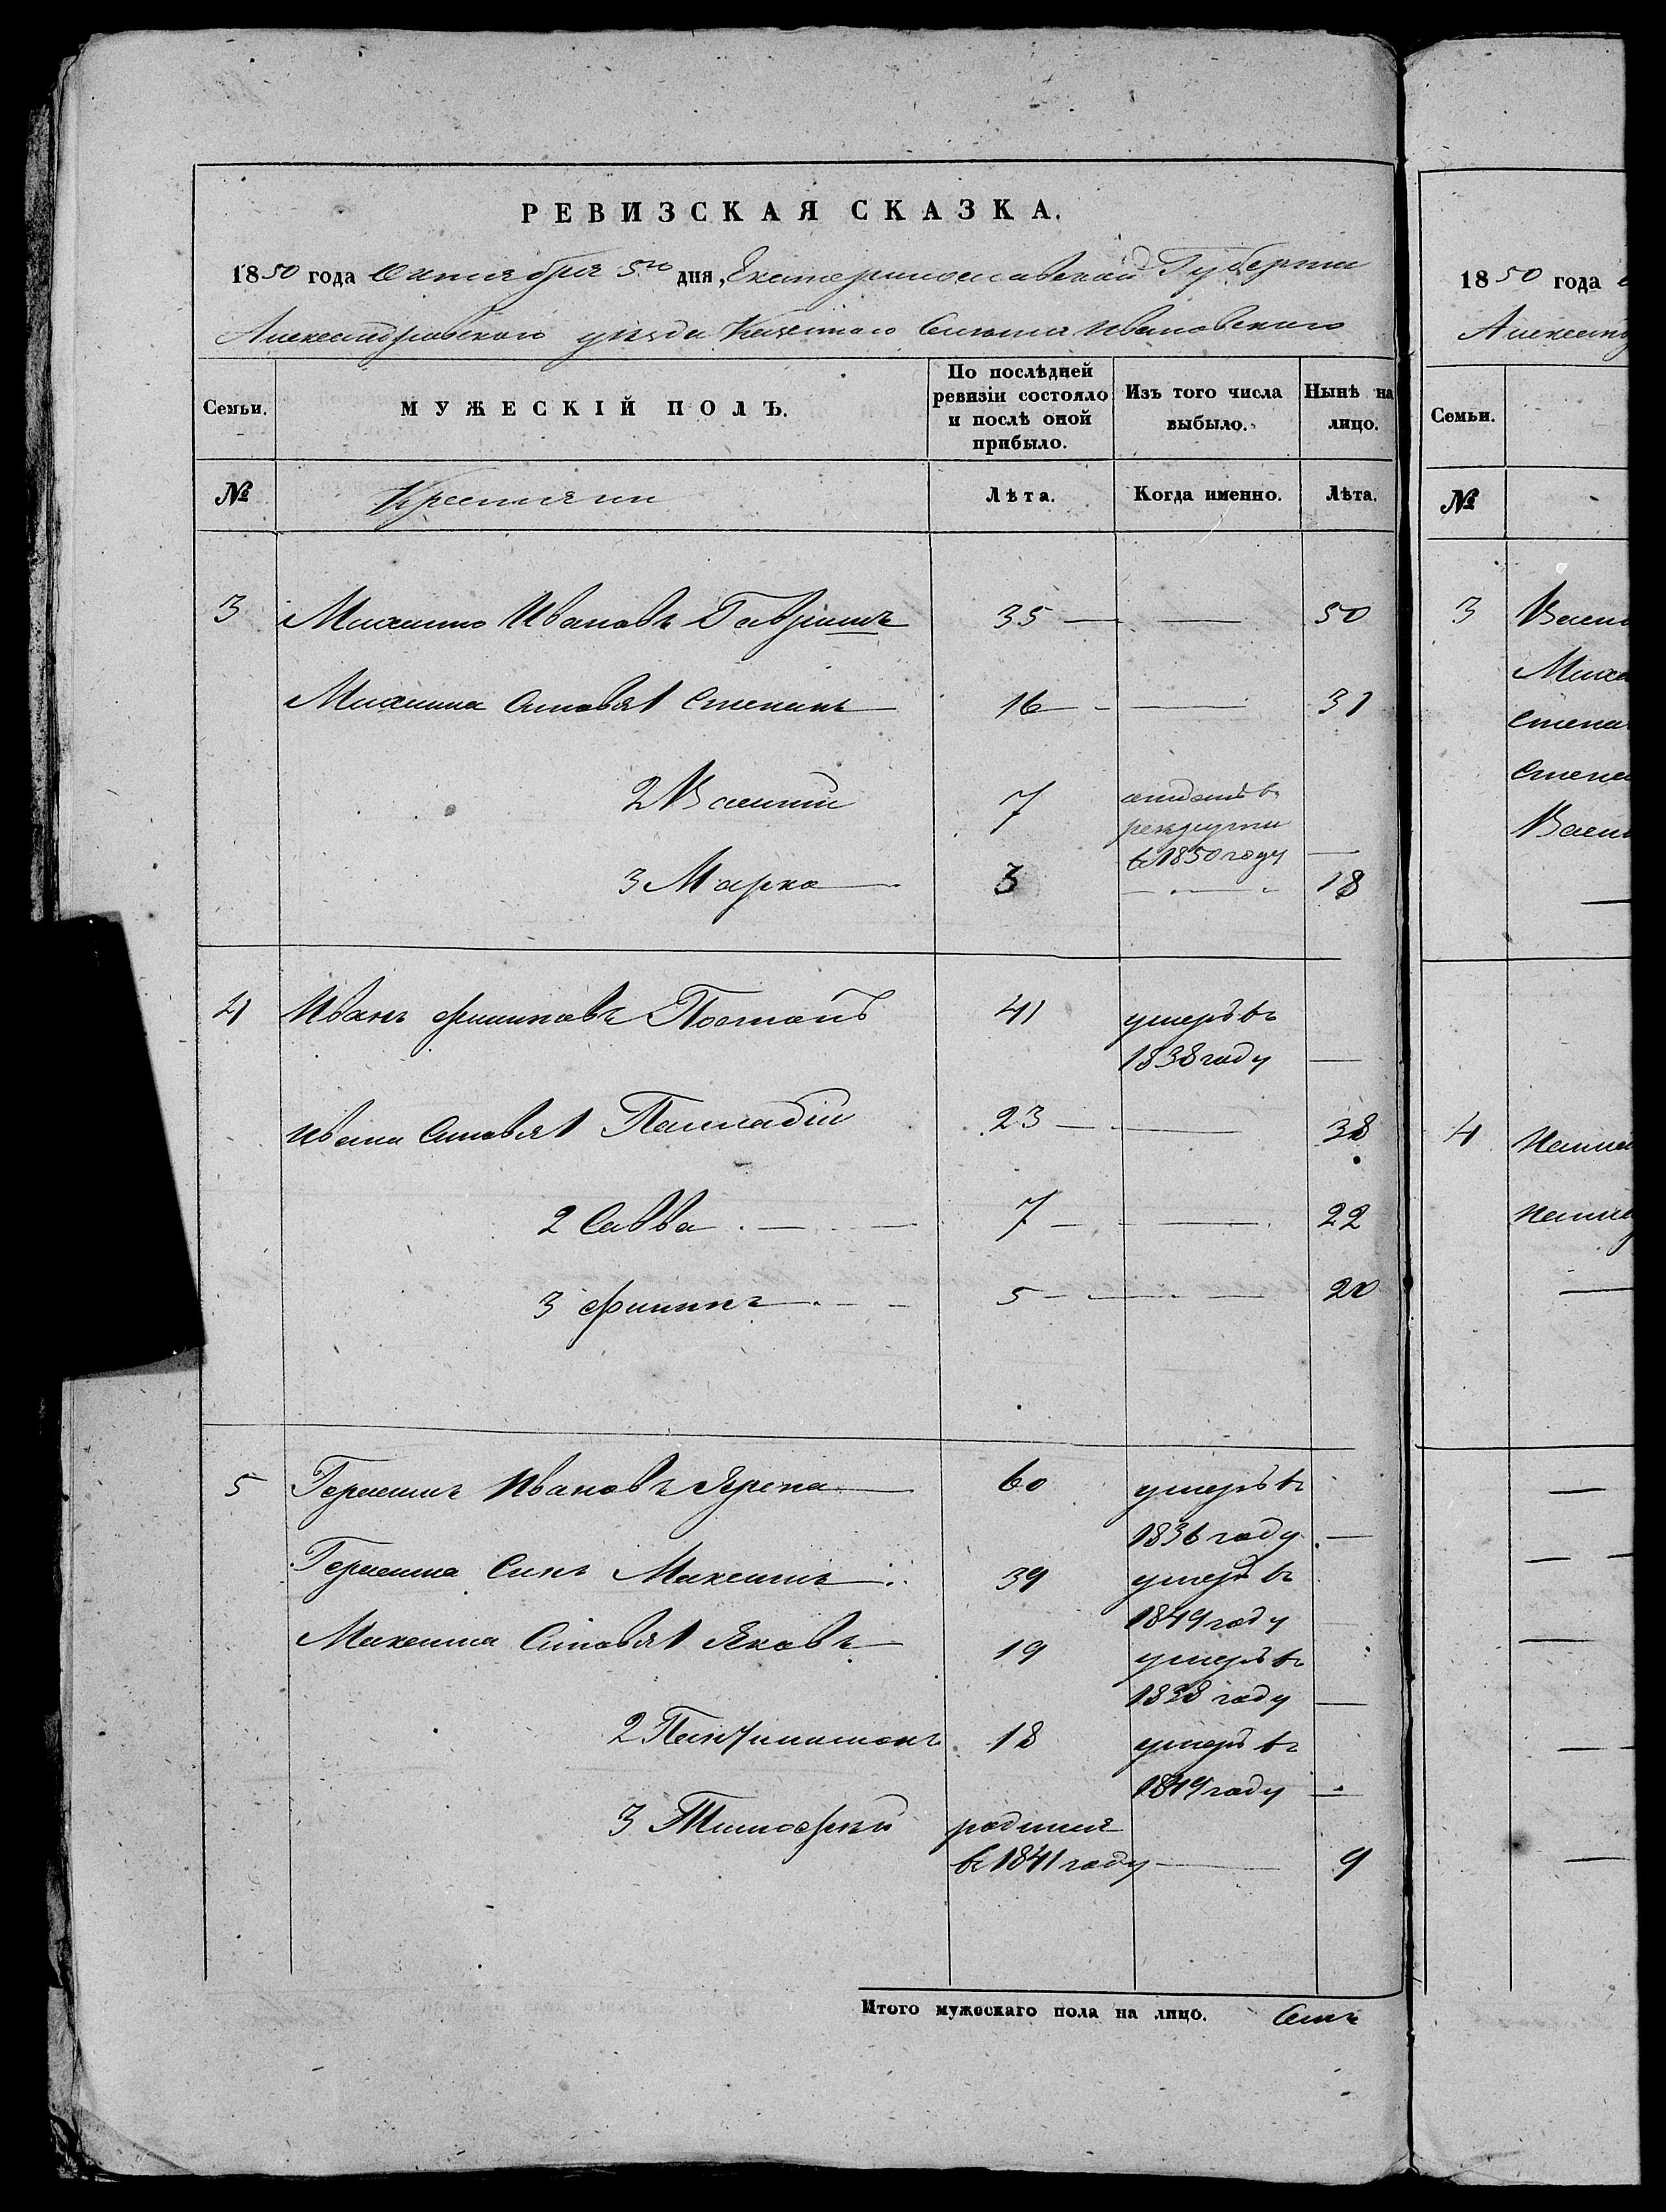 РЕВИЗСКАЯ СКАЗКА.
1850 года Октября 5го дня, Екатеринославской Губернии
Александровского уезда Казенного Селения Ивановского
Семьи. МУЖЕСКІЙ ПОЛЪ. По послѣдней ревизіи состояло и послѣ оной прибыло. Изъ того числа выбыло. Нынѣ на лицо.
№ Крестьяни Лѣта. Когда именно. Лѣта.
3 Михаило Ивановъ Гавришъ 35 — — 50
Михаила Сыновья 1 Степанъ 16 — — 31
2 Василий 7 отданъ въ
рекруты
въ 1850 году —
3 Марко 3 — 18
4 Иванъ Филиповъ 41 умеръ въ
1838 году —
Ивана Сыновья 1 Палладій 23 — — 38
2 Савва 7 — — 22
3 Филипъ 5 — — 20
5 Герасимъ Ивановъ Ярена 60 умеръ въ
1836 году —
Герасима Сынъ Максимъ 39 умеръ въ
1849 году
Максима Сыновья 1 Яковъ 19 умеръ въ
1838 году —
2 Пантилимонъ 18 умеръ въ
1849 году —
3 Тимофей родился
въ 1841 году — 9
Итого мужескаго пола на лицо. Семь
1850 года
Семьи.
№
3
4